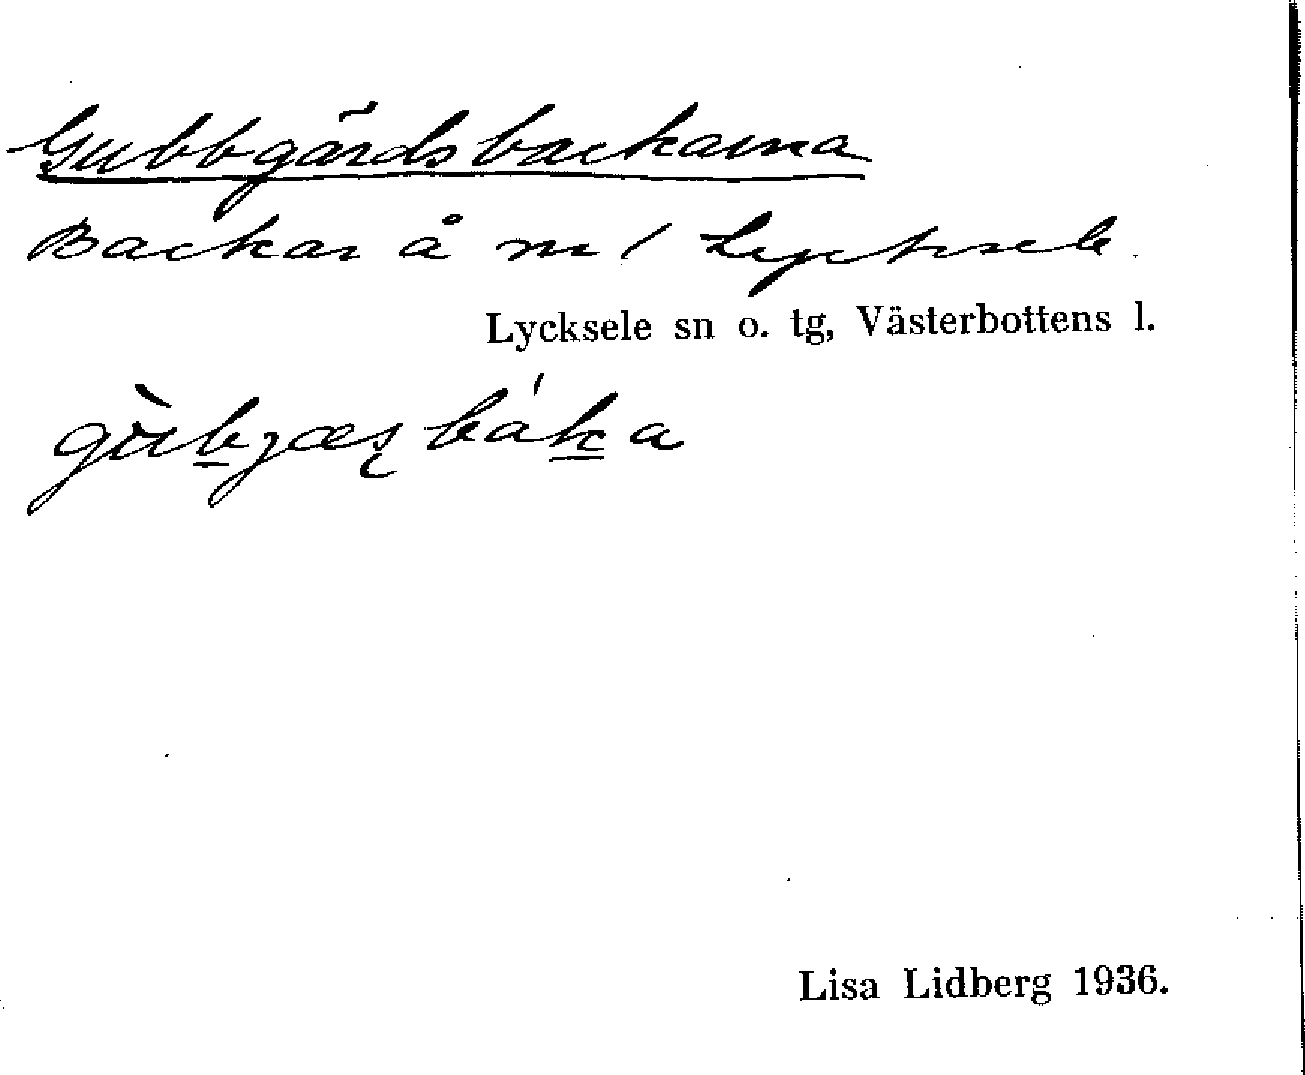 Gubbgärdsbackarna
Backar å nr 1 Lycksele.
Lycksele sn o. tg, Västerbottens l.
Lisa Lidberg 1936.